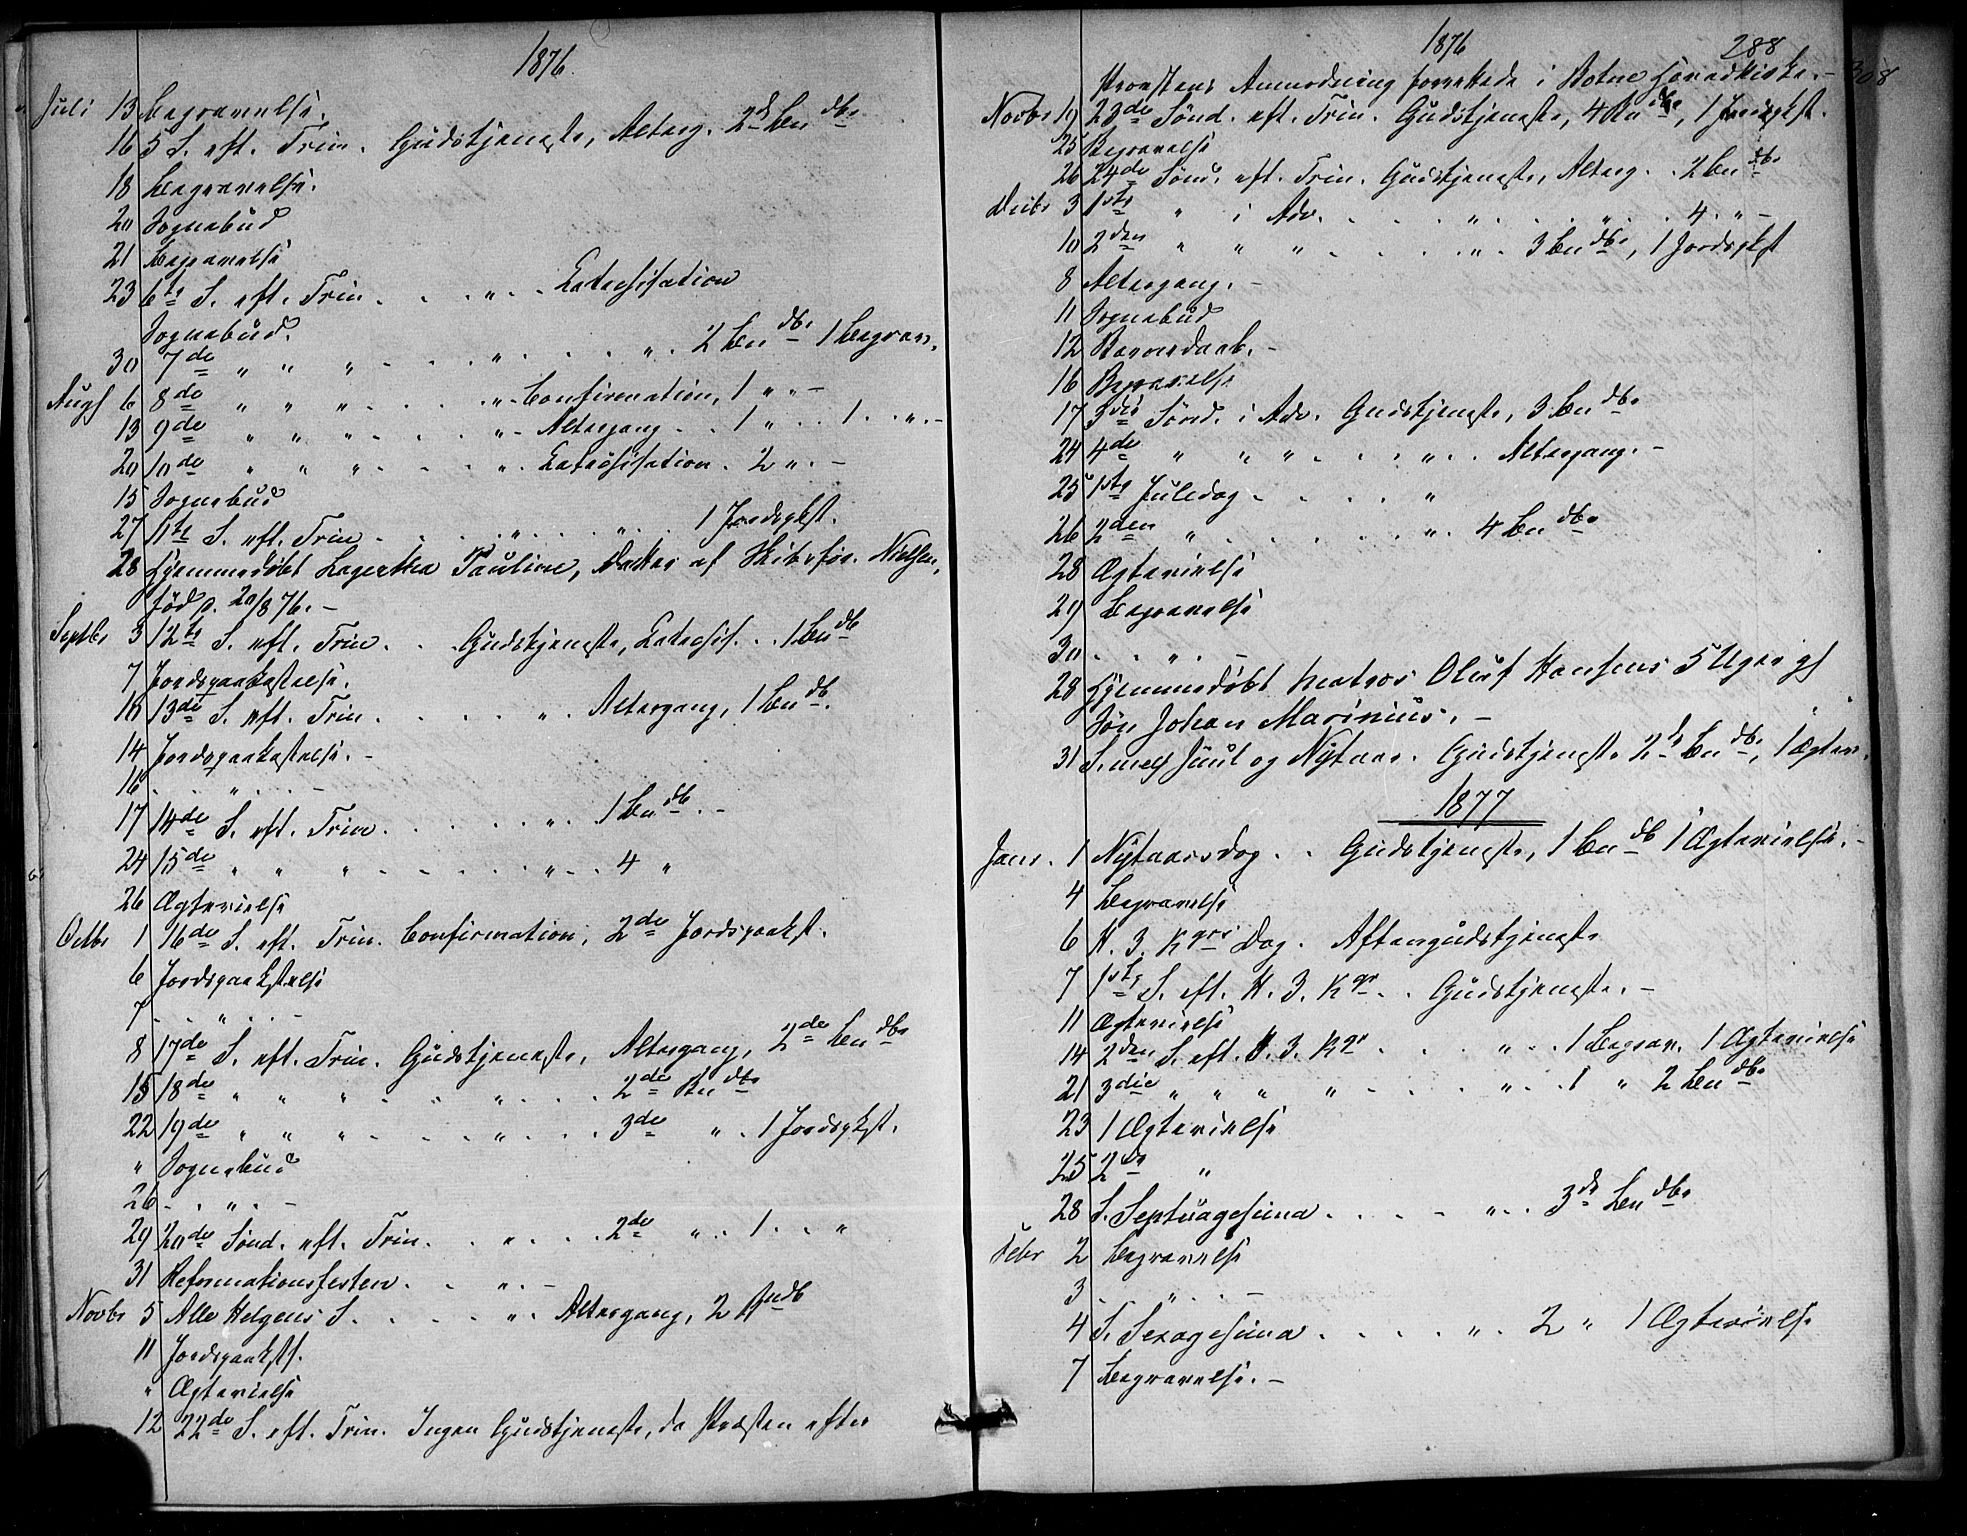 1876.
Juli 13 Begravelse.
16 5 S. eft. Trin. Gudstjeneste, Alterg. 2 Bndb.
18 Begravelse.
20 Sognebud
21 Begravelse
23 6te S. eft. Trin . . . " . . Catechisation
Sognebud.
30 7de " " " . . . " . . . " . 2 Bndb. 1 Begrav.
Aug 6 8de " " " . . . " . Confirmation, 1 " . –
13 9de " " " . . . " – Altergang . . 1 " . . 1 . " . –
20 10de " " " . . . " . Catechisation . 2 " . –
15 Sognebud
27 11te S. eft. Trin . . . " . . . " . . 1 Jordspkst.
28 Hjemmedøbt Lagertha Pauline, Datter af Skibsfør. Nielsen,
født p. 20/8 76. –
Septbr 3 12te S. eft. Trin . . Gudstjeneste, Catechis. . . 1 Bndb
7 Jordspaakastelse.
10 13de S. eft. Trin . . . . . " . Altergang, 1 Bndb.
14 Jordspaakastelse. –
16 . . " . . . –
17 14de S. eft. Trin . . . . . . " . 1 Bndb. –
24 15de " " " . . . . . " . . 4 "
26 Ægtevielse
Octbr 1 16de S. eft. Trin. Confirmation, 2de Jordspaakst.
6 Jordspaakstelse
7 . . " . . –
8 17de S. eft. Trin. Gudstjeneste, Altergang, 2de Bndb.
15 18de " " " . . . " . . . . 2de Bndb.
22 19de " " " . . . " . . . . 3de " . 1 Jordspkst.
" Sognebud
26 . . " . . –
29 20de Sønd. eft. Trin . . " . . . . 2de " . . 1 . . "
31 Reformationsfesten . . " . –
Novbr 5 Alle Helgens S. . . . . " . Altergang, 2 Bndb
11 Jordspaakst.
" Ægtevielse
12 22de S. eft. Trin. Ingen Gudstjeneste, da Præsten efter
1876 288
308
Provstens Anmodning forrettede i Botne Hovedkirke. –
Novbr 19 23de Sønd. eft. Trin. Gudstjeneste, 4 Bndb., 1 Jordspkst.
25 Begravelse
26 24de Sønd. eft. Trin. Gudstjeneste, Alterg. . 2 Bndb.
Decbr 3 1ste " i Adv. . . . " . . . " . . 4 . " –
10 2den " " " . . . . " . 3 Bndb., 1 Jordspkst
8 Altergang. –
11 Sognebud
12 Barnedaab. –
16 Begravelse
17 3die Sønd. i Adv. Gudstjeneste, 3 Bndb.
24 4de " " " . . . " . . Altergang. –
25 1ste Juledag . . . . "
26 2den " . . . . . " . 4 Bndb.
28 Ægtevielse
29 Begravelse
30 . . " . –
28 Hjemmedøbt Matros Oluf Hansens 5 Uger gl
Søn Johan Marinius. –
31 S. mell Juul og Nytaar. Gudstjeneste 2de Bndb., 1 Ægtev.
1877
Janr. 1 Nytaarsdag . . Gudstjeneste, 1 Bndb 1 Ægtevielse. –
4 Begravelse
6 H. 3. Kgrs Dag. Aftengudstjeneste
7 1ste S. eft. H. 3. Kgr . . Gudstjeneste. –
11 Ægtevielse
14 2den S. eft. H. 3. Kgr . . . " . . 1 Begrav. 1 Ægtevielse
21 3die " " " " . . . " . . 1 " 2 Bndb.
23 1 Ægtevielse
25 2de "
28 S. Septuagesima . . . – " . . 3de Bndb.
Febr 2 Begravelse
3 . " . . –
4 S. Sexagesima . . . . " . 2 " 1 Ægtevielse
7 Begravelse. –